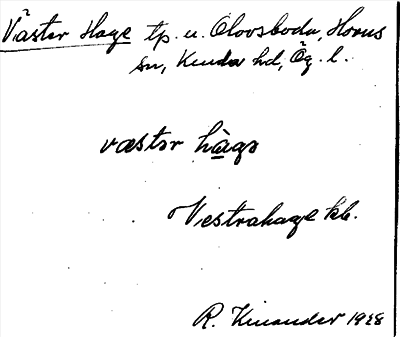 Väster Hage tp. u. Olovsboda, Horns
sn, Kinda hd, Ög. l.
væstər hàgə
Vestrahage kb.
R. Kinander 1928